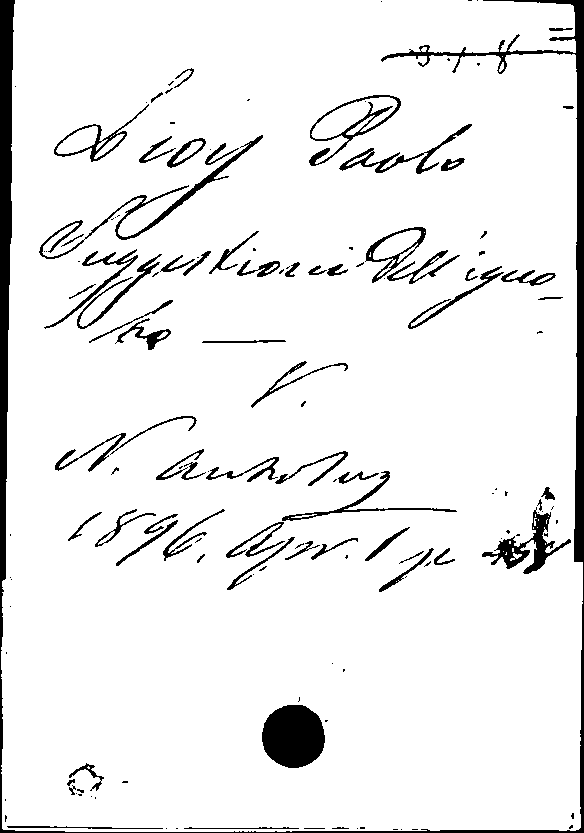 3.1.8
Lioy Paolo
Suggestioni Dell'igno-
to —
V.
N. Antolog
1896. Apr. 1 p.